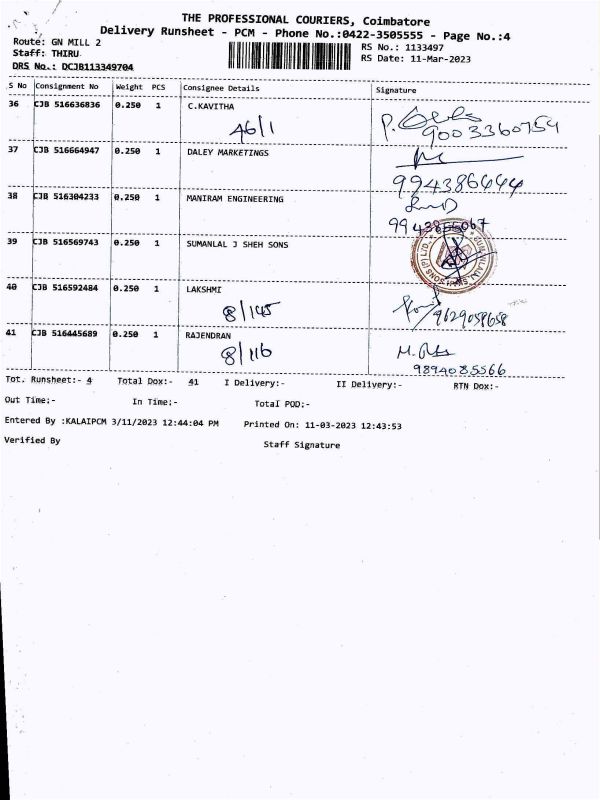 THE PROFESSIONAL COURIERS, Coimbatore
Delivery Runsheet - PCM - Phone No.:0422-3505555 - Page No.:4
Route: GN MILL 2
RS No.: 1133497
Staff: THIRU
RS Date: 11-Mar-2023
DRS No.: DCJB113349704
S No Consignment No Weight PCS Consignee Details Signature
36 CJB 516636836 0.250 1 C.KAVITHA
46/1
9003360754
37 CJB 516664947 0.250 1 DALEY MARKETINGS
38 CJB 516304233 0.250 1 MANIRAM ENGINEERING
39 CJB 516569743 0.250 1 SUMANLAL J SHEH SONS
40 CJB 516592484 0.250 1 LAKSHMI
8/145
9629058658
41 CJB 516445689 0.250 1 RAJENDRAN
8/116
9894085566
Tot. Runsheet:- 4 Total Dox:- 41 I Delivery:- II Delivery:- RTN Dox:-
Out Time:- In Time:- Total POD:-
Entered By :KALAIPCM 3/11/2023 12:44:04 PM Printed On: 11-03-2023 12:43:53
Verified By Staff Signature